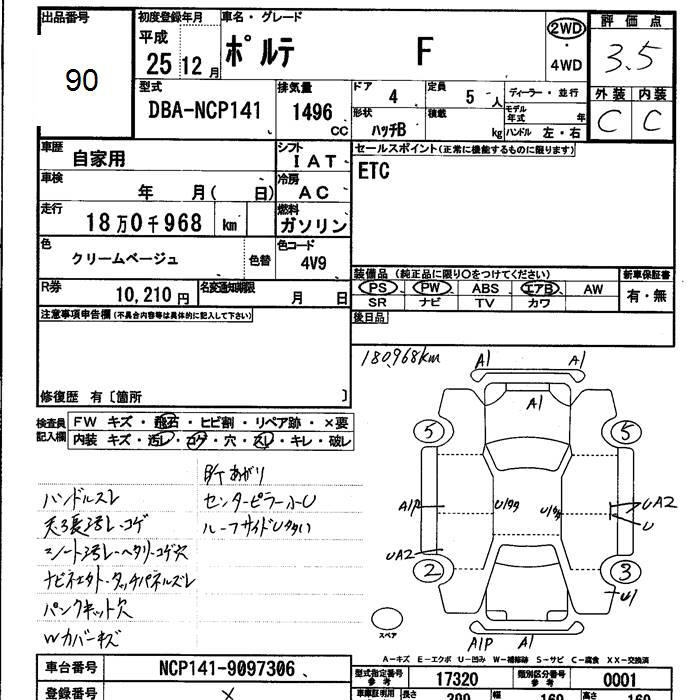 出品番号
90
初度登録年月
平成
25 12 月
車名・グレード
ポルテ F
2WD
・
4WD
評価点
3.5
外装 内装
C C
型式
DBA-NCP141
排気量
1496 CC
ドア 4
定員 5 人
ディーラー・並行
形状 ハッチB
積載 kg
モデル年式 年
ハンドル 左・右
車歴 自家用
シフト IAT
車検 年 月( 日)
冷房 AC
走行 18万0千968 km
燃料 ガソリン
色 クリームベージュ
色替
色コード 4V9
R券 10,210円
名変通知期限 月 日
セールスポイント(正常に機能するものに限ります)
ETC
装備品 (純正品に限り○をつけてください)
PS PW ABS エアB AW
SR ナビ TV カワ
新車保証書
有・無
後日品
注意事項申告欄(不具合内容等は具体的に記入して下さい)
修復歴 有〔箇所 〕
検査員記入欄
FW キズ・飛石・ヒビ割・リペア跡・×要
内装 キズ・汚レ・コゲ・穴・スレ・キレ・破レ
ハンドルスレ
センターピラー小U
ルーフサイドU多い
シート汚レ・ヘタリ・コゲ穴
パンクキット欠
Wカバーキズ
180,968km
A1 A1
A1
5 5
A1P
UA2
U
UA2
2 3
U1
A1P A1
スペア
A-キズ E-エクボ U-凹み W-補修跡 S-サビ C-腐食 XX-交換済
車台番号 NCP141-9097306
型式指定番号参考 17320
類別区分番号参考 0001
登録番号
車庫証明用参考
長さ
幅
高さ